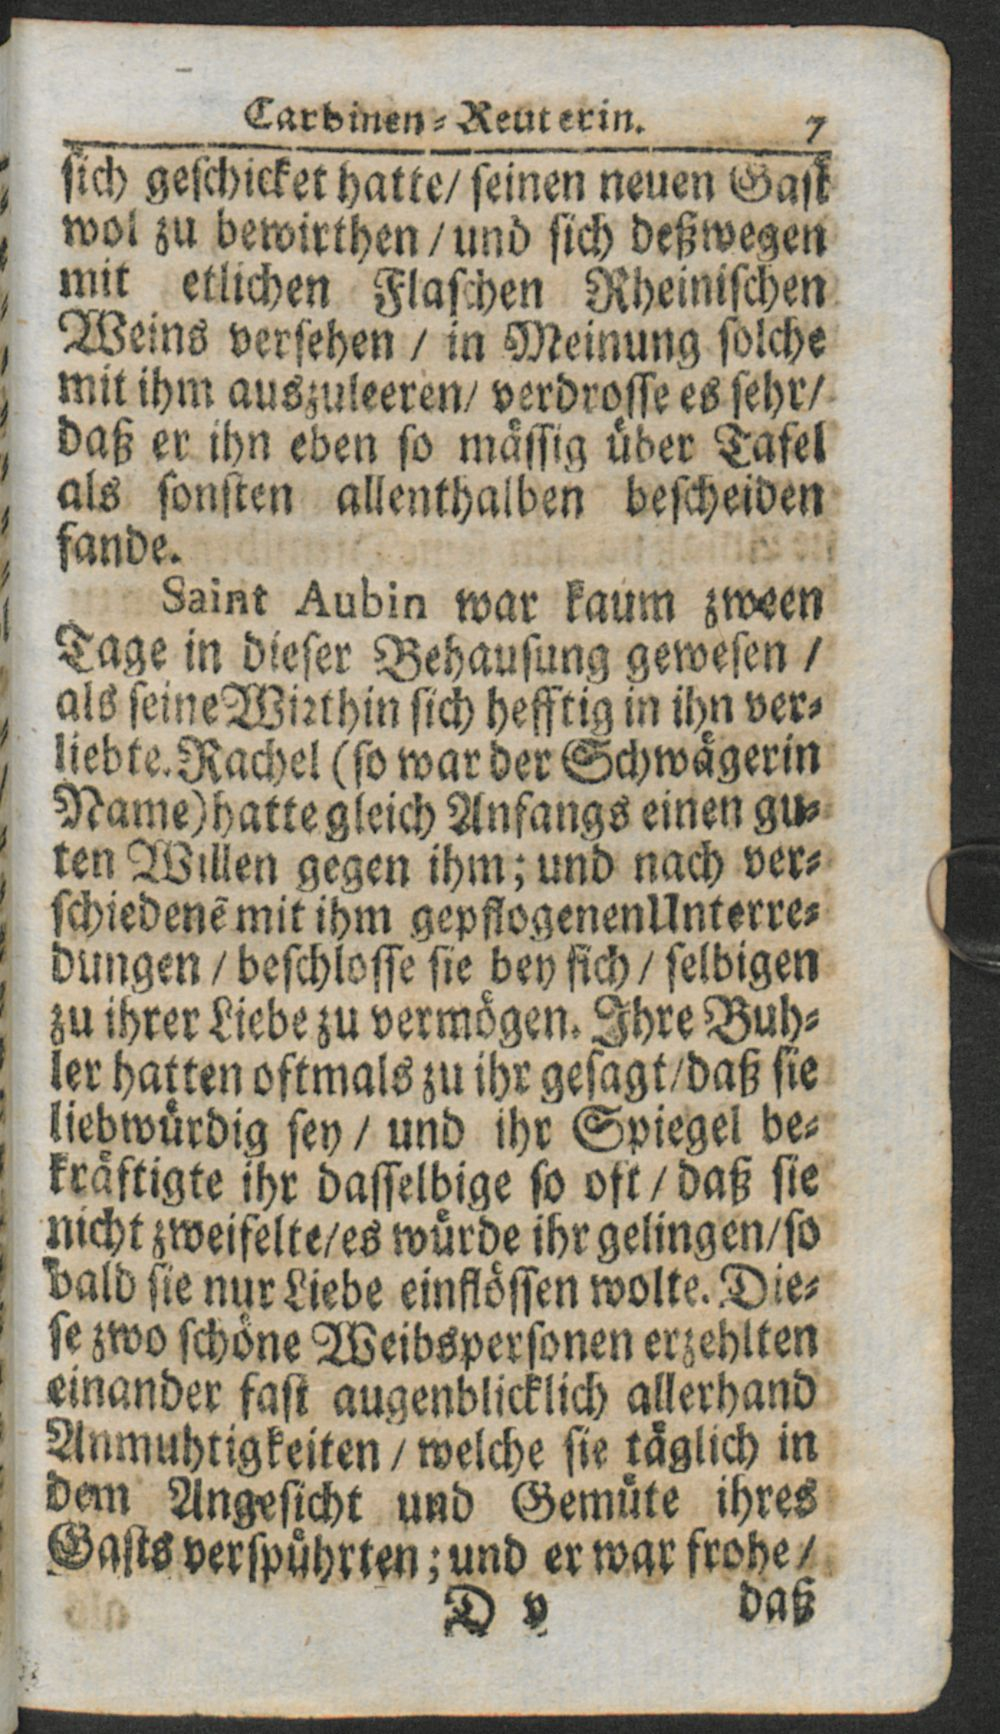 Carbinen-Reuterin. 7
sich geschicket hatte/ seinen neuen Gast
wol zu bewirthen / und sich deßwegen
mit etlichen Flaschen Rheinischen
Weins versehen / in Meinung solche
mit ihm auszuleeren/ verdrosse es sehr/
daß er ihn eben so mässig über Tafel
als sonsten allenthalben bescheiden
fande.
Saint Aubin war kaum zween
Tage in dieser Behausung gewesen /
als seine Wirthin sich hefftig in ihn ver-
liebte. Rachel (so war der Schwägerin
Name) hatte gleich Anfangs einen gu-
ten Willen gegen ihm; und nach ver-
schiedenē mit ihm gepflogenen Unterre-
dungen / beschlosse sie bey sich / selbigen
zu ihrer Liebe zu vermögen. Ihre Buh-
ler hatten oftmals zu ihr gesagt/daß sie
liebwürdig sey / und ihr Spiegel be-
kräftigte ihr dasselbige so oft / daß sie
nicht zweifelte/es würde ihr gelingen/so
bald sie nur Liebe einflössen wolte. Die-
se zwo schöne Weibspersonen erzehlten
einander fast augenblicklich allerhand
Anmuhtigkeiten / welche sie täglich in
dem Angesicht und Gemüte ihres
Gasts verspührten; und er war frohe /
D v daß